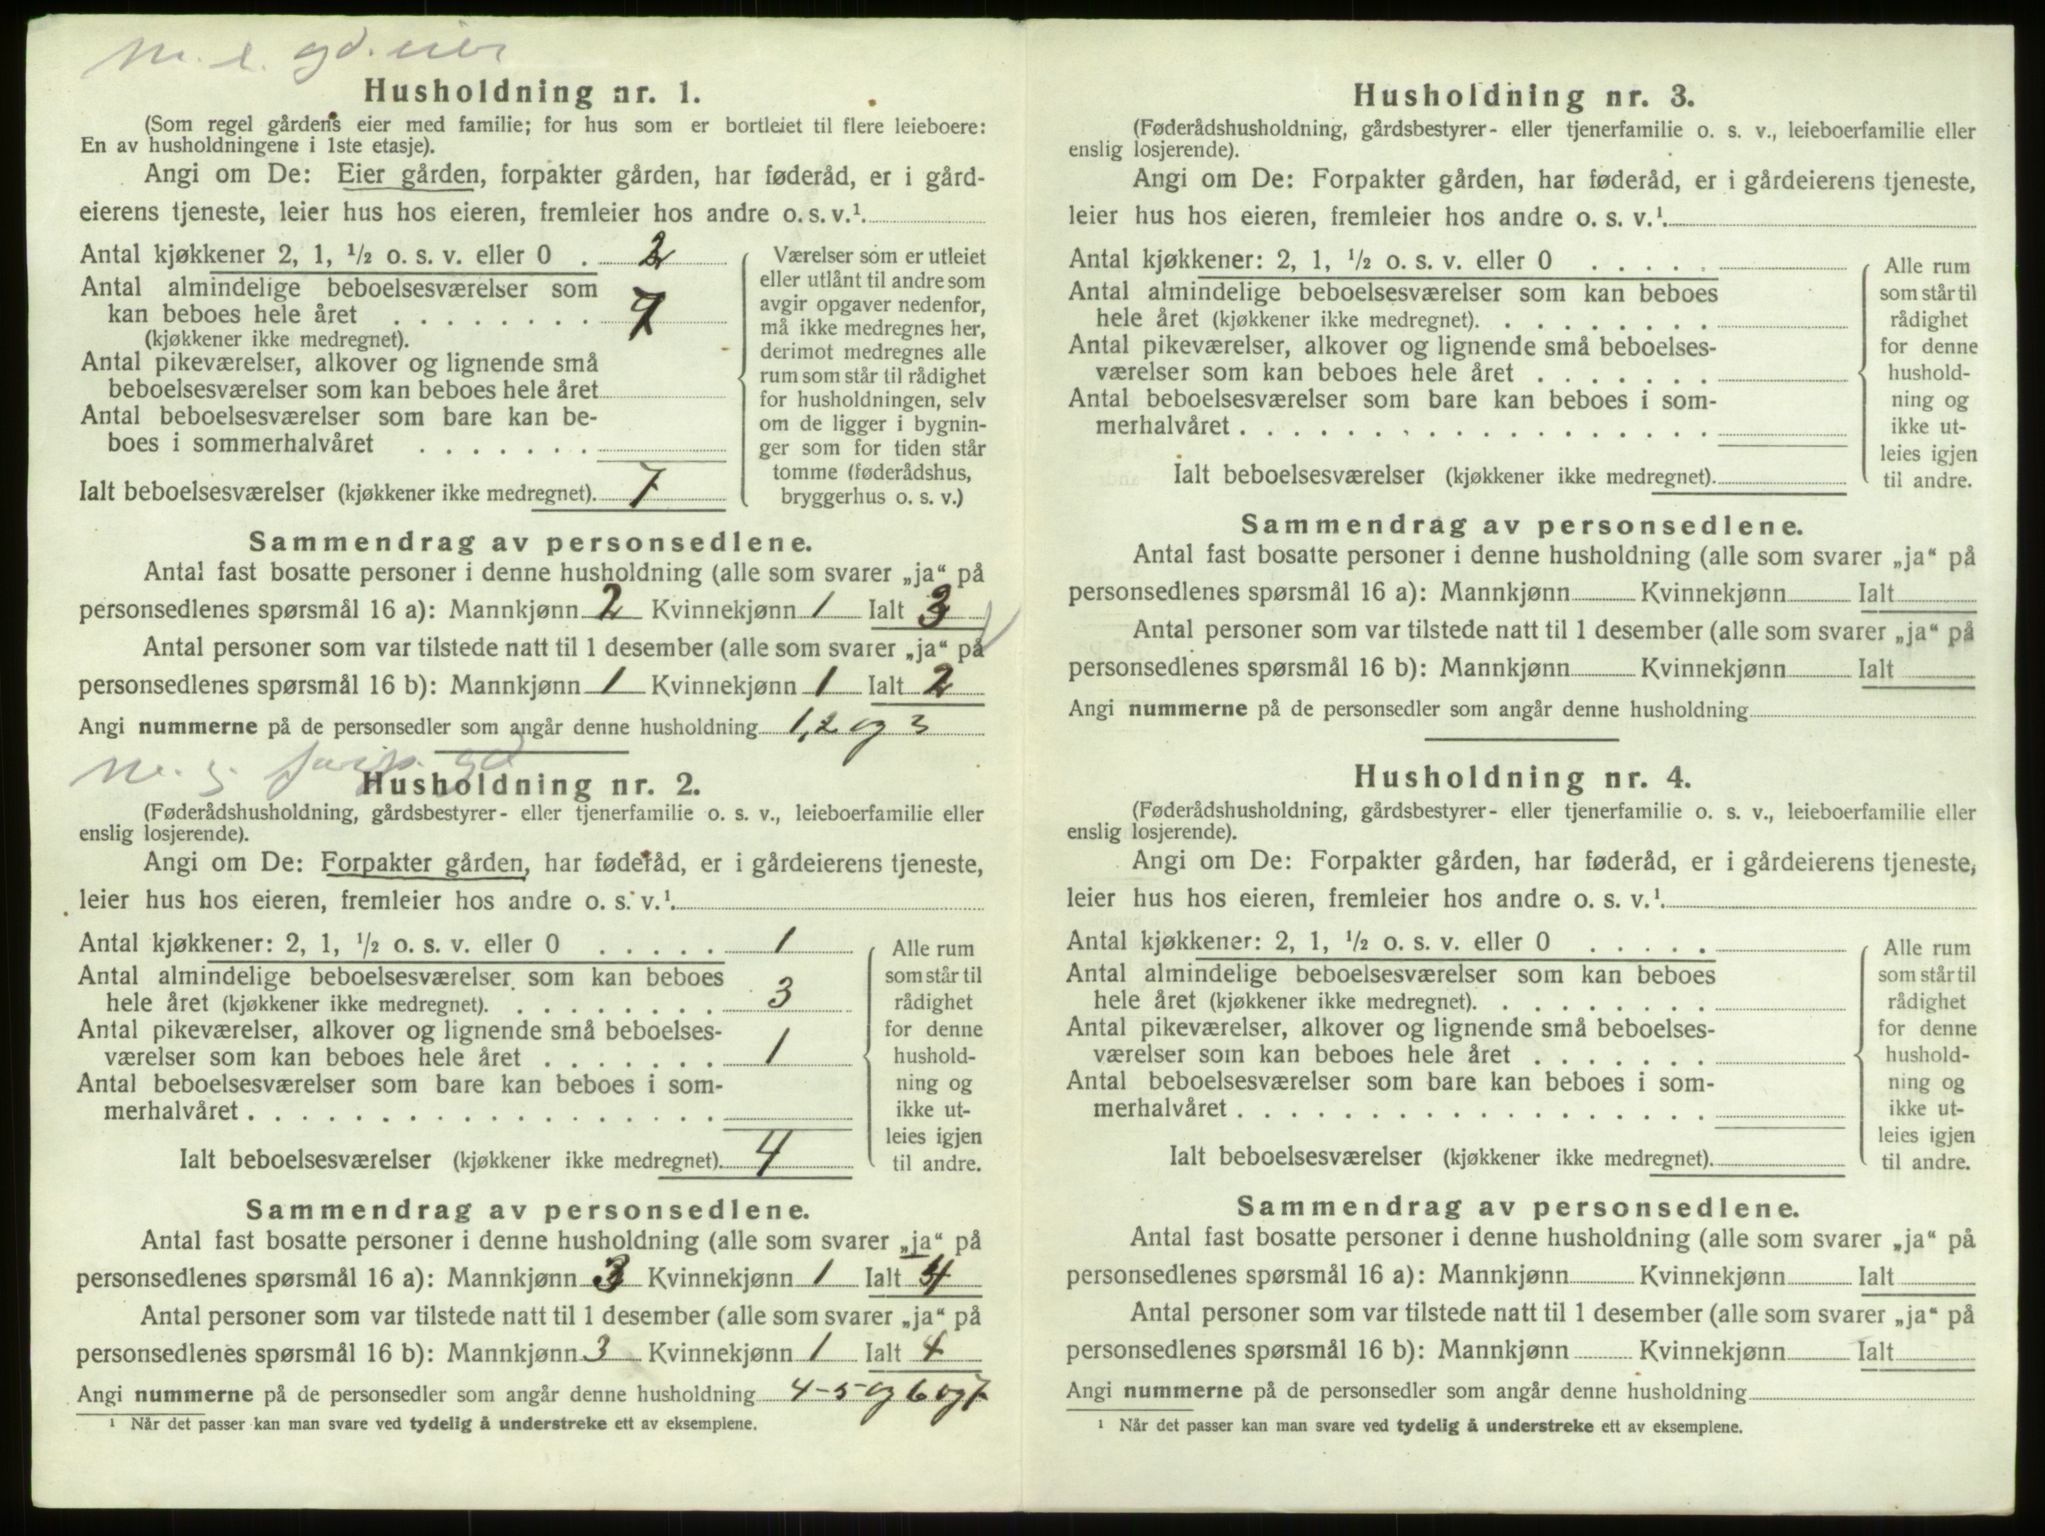 Husholdning nr. 1.
(Som regel gårdens eier med familie; for hus som er bortleiet til flere leieboere:
En av husholdningene i 1ste etasje).
Angi om De: Eier gården, forpakter gården, har føderåd, er i gård-
eierens tjeneste, leier hus hos eieren, fremleier hos andre o. s. v.¹.
Antal kjøkkener 2, 1, ½ o. s. v. eller 0 . 2
Antal almindelige beboelsesværelser som
kan beboes hele året . . . . . . . . 7
(kjøkkener ikke medregnet).
Antal pikeværelser, alkover og lignende små
beboelsesværelser som kan beboes hele året
Antal beboelsesværelser som bare kan be-
boes i sommerhalvåret . . . . . . .
Ialt beboelsesværelser (kjøkkener ikke medregnet). 7
Værelser som er utleiet
eller utlånt til andre som
avgir opgaver nedenfor,
må ikke medregnes her,
derimot medregnes alle
rum som står til rådighet
for husholdningen, selv
om de ligger i bygnin-
ger som for tiden står
tomme (føderådshus,
bryggerhus o. s. v.)
Sammendrag av personsedlene.
Antal fast bosatte personer i denne husholdning (alle som svarer „ja“ på
personsedlenes spørsmål 16 a): Mannkjønn 2 Kvinnekjønn 1 Ialt 3
Antal personer som var tilstede natt til 1 desember (alle som svarer „ja“ på
personsedlenes spørsmål 16 b): Mannkjønn 1 Kvinnekjønn 1 Ialt 2
Angi nummerne på de personsedler som angår denne husholdning 1, 2 og 3
Husholdning nr. 2.
(Føderådshusholdning, gårdsbestyrer- eller tjenerfamilie o. s. v., leieboerfamilie eller
enslig losjerende).
Angi om De: Forpakter gården, har føderåd, er i gårdeierens tjeneste,
leier hus hos eieren, fremleier hos andre o. s. v.¹.
Antal kjøkkener: 2, 1, ½ o. s. v. eller 0 . . . . . 1
Antal almindelige beboelsesværelser som kan beboes
hele året (kjøkkener ikke medregnet). . . . . . . . . 3
Antal pikeværelser, alkover og lignende små beboelses-
værelser som kan beboes hele året . . . . . . . 1
Antal beboelsesværelser som bare kan beboes i som-
merhalvåret . . . . . . . . . . . . . . . . . .
Ialt beboelsesværelser (kjøkkener ikke medregnet). 4
Alle rum
som står til
rådighet
for denne
hushold-
ning og
ikke ut-
leies igjen
til andre.
Sammendrag av personsedlene.
Antal fast bosatte personer i denne husholdning (alle som svarer „ja“ på
personsedlenes spørsmål 16 a): Mannkjønn 3 Kvinnekjønn 1 Ialt 4
Antal personer som var tilstede natt til 1 desember (alle som svarer „ja“ på
personsedlenes spørsmål 16 b): Mannkjønn 3 Kvinnekjønn 1 Ialt 4
Angi nummerne på de personsedler som angår denne husholdning 4-5 og 6 og 7
¹ Når det passer kan man svare ved tydelig å understreke ett av eksemplene.
Husholdning nr. 3.
(Føderådshusholdning, gårdsbestyrer- eller tjenerfamilie o. s. v., leieboerfamilie eller
enslig losjerende).
Angi om De: Forpakter gården, har føderåd, er i gårdeierens tjeneste,
leier hus hos eieren, fremleier hos andre o. s. v.¹.
Antal kjøkkener: 2, 1, ½ o. s. v. eller 0 . . . . .
Antal almindelige beboelsesværelser som kan beboes
hele året (kjøkkener ikke medregnet). . . . . . . . .
Antal pikeværelser, alkover og lignende små beboelses-
værelser som kan beboes hele året . . . . . . .
Antal beboelsesværelser som bare kan beboes i som-
merhalvåret . . . . . . . . . . . . . . . . . .
Ialt beboelsesværelser (kjøkkener ikke medregnet).
Alle rum
som står til
rådighet
for denne
hushold-
ning og
ikke ut-
leies igjen
til andre.
Sammendrag av personsedlene.
Antal fast bosatte personer i denne husholdning (alle som svarer „ja“ på
personsedlenes spørsmål 16 a): Mannkjønn Kvinnekjønn Ialt
Antal personer som var tilstede natt til 1 desember (alle som svarer „ja“ på
personsedlenes spørsmål 16 b): Mannkjønn Kvinnekjønn Ialt
Angi nummerne på de personsedler som angår denne husholdning
Husholdning nr. 4.
(Føderådshusholdning, gårdsbestyrer- eller tjenerfamilie o. s. v., leieboerfamilie eller
enslig losjerende).
Angi om De: Forpakter gården, har føderåd, er i gårdeierens tjeneste,
leier hus hos eieren, fremleier hos andre o. s. v.¹.
Antal kjøkkener: 2, 1, ½ o. s. v. eller 0 . . . . .
Antal almindelige beboelsesværelser som kan beboes
hele året (kjøkkener ikke medregnet). . . . . . . . .
Antal pikeværelser, alkover og lignende små beboelses-
værelser som kan beboes hele året . . . . . . .
Antal beboelsesværelser som bare kan beboes i som-
merhalvåret . . . . . . . . . . . . . . . . . .
Ialt beboelsesværelser (kjøkkener ikke medregnet).
Alle rum
som står til
rådighet
for denne
hushold-
ning og
ikke ut-
leies igjen
til andre.
Sammendrag av personsedlene.
Antal fast bosatte personer i denne husholdning (alle som svarer „ja“ på
personsedlenes spørsmål 16 a): Mannkjønn Kvinnekjønn Ialt
Antal personer som var tilstede natt til 1 desember (alle som svarer „ja“ på
personsedlenes spørsmål 16 b): Mannkjønn Kvinnekjønn Ialt
Angi nummerne på de personsedler som angår denne husholdning
¹ Når det passer kan man svare ved tydelig å understreke ett av eksemplene.